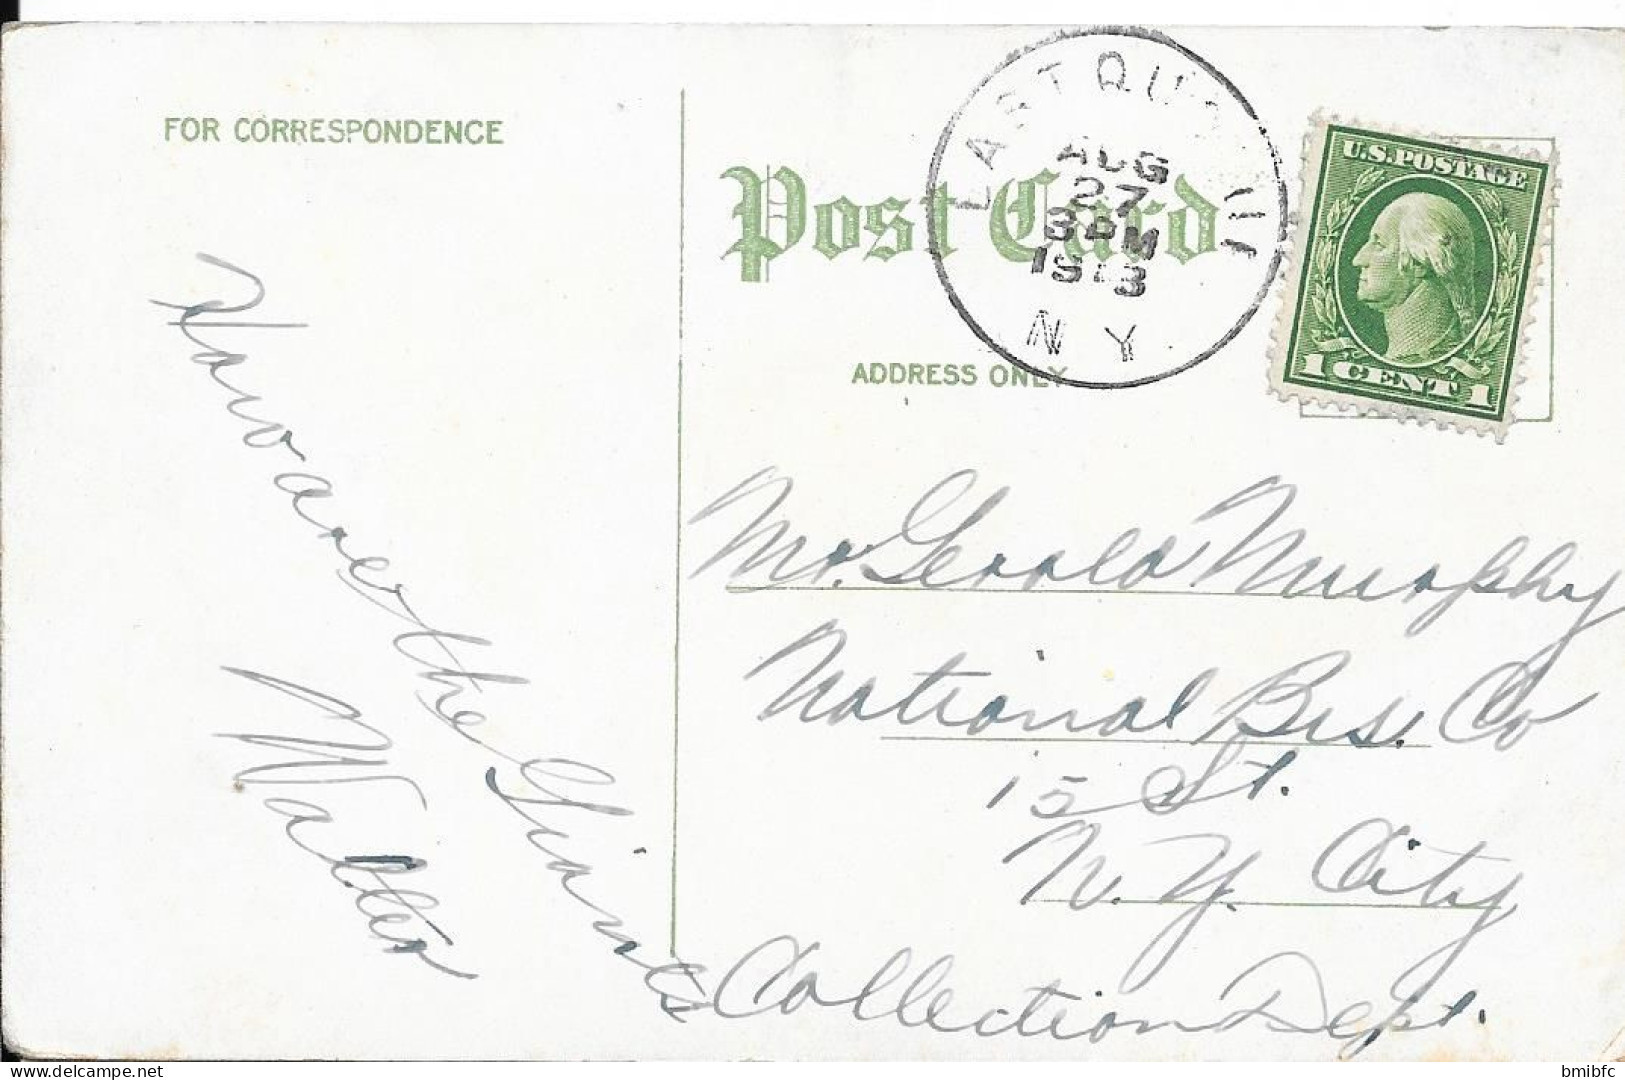 FOR CORRESPONDENCE
Post Card
ADDRESS ONLY
EAST QU
AUG
27
3 PM
1913
N Y
U.S. POSTAGE
1 CENT 1
How are the Giants
Walter
Mr. Gerald Murphy
National Bis. Co
15 St.
N. Y. City
Collection Dept.
delcampe.net
bmibfc